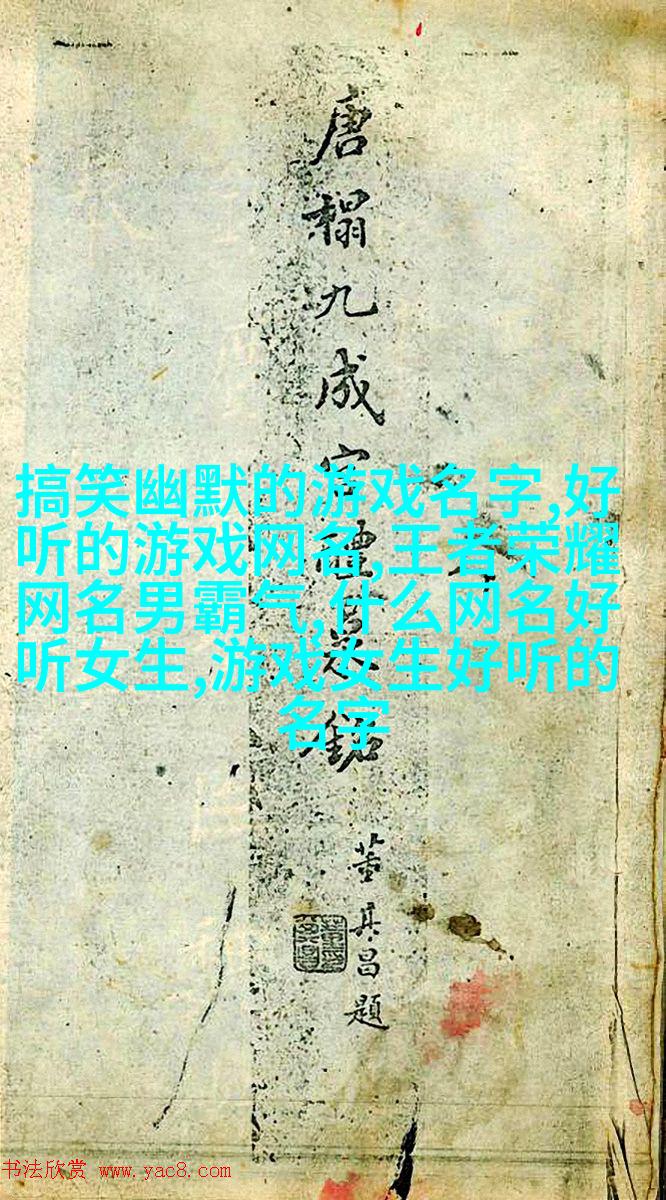 唐榻九成宫醴泉銘
董其昌題
搞笑幽默的游戏名字,好
听的游戏网名,王者荣耀
网名男霸气,什么网名好
听女生,游戏女生好听的
名字
书法欣赏 www.yac8.com